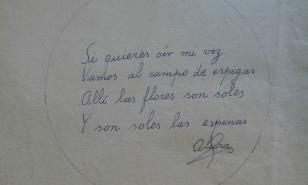 Si quieres oir mi voz
Vamos al campo de espigas
Allí las flores son soles
Y son soles las espinas